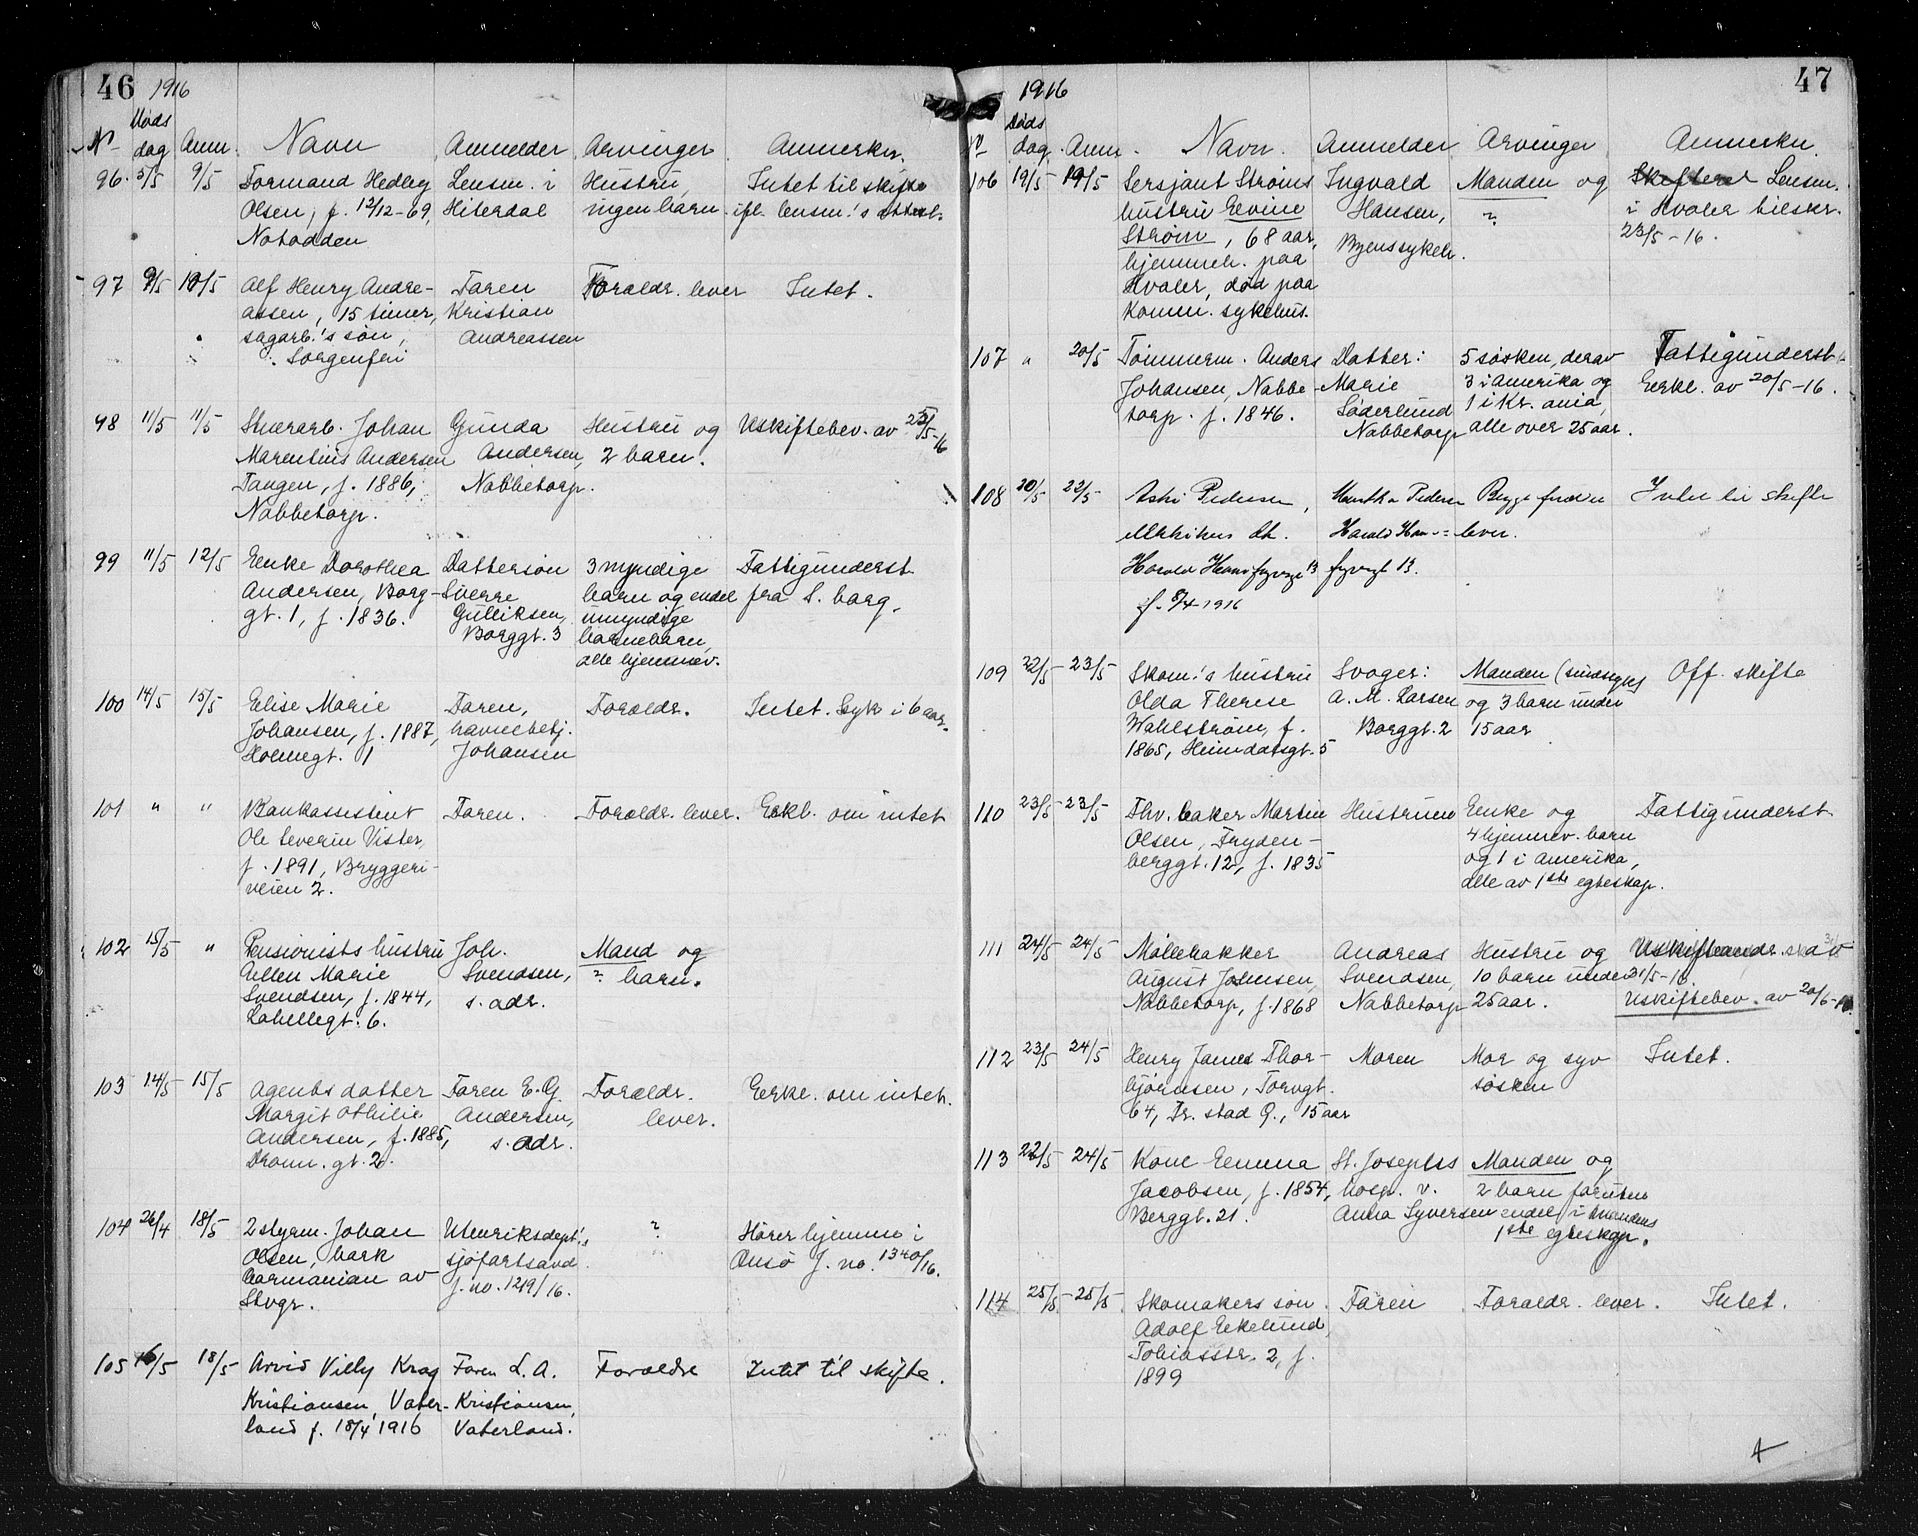 46 1916
No Døds dag Anm. Navn Anmelder Arvinger Anmerkn.
96. 5/5 9/5 Formand Hedley Lensm. i Hustru, Intet til skifte
Olsen, f. 12/12-69, Hiterdal ingen barn ifl. lensm.'s attest.
Notodden
97 9/5 10/5 Alf Henry Andre- Faren Forældr. lever Intet.
assen, 15 timer, Kristian
sagarb.'s søn, Andreassen
Sorgenfri
98 11/5 11/5 Skærarb. Johan Gunda Hustru og Uskiftebev. av 23/5-16
Marentius Andersen Andersen, 2 barn.
Tangen, f. 1886, Nabbetorp.
Nabbetorp.
99 11/5 12/5 Enke Dorothea Dattersøn 3 myndige Fattigunderst.
Andersen, Borg- Sverre barn og endel fra S. borg.
gt. 1, f. 1836. Gulliksen, umyndige
Borggt. 3 barnebarn,
alle hjemmev.
100 14/5 15/5 Elise Marie Faren, Forældr. Intet. Syk i 6 aar.
Johansen, f. 1887, havnebetj.
Holmegt. 1 Johansen
101 " " Bankassistent Faren. Forældr. lever. Erkl. om intet
Ole Severin Vister,
f. 1891, Bryggeri-
veien 2.
102 15/5 " Pensionists hustru Joh. Mand og
Ellen Marie Svendsen, ? barn.
Svendsen, f. 1844, s. adr.
Labellegt. 6.
103 14/5 15/5 Agents datter Faren E. G. Forældr. Erkl. om intet.
Margit Othilie Andersen, lever.
Andersen, f. 1885, s. adr.
Dronn. gt. 2.
104 26/4 18/5 2 styrm. Johan Utenriksdept.'s ? Hører hjemme i
Olsen, bark sjøfartsavd. Onsø J. no. 1340/16.
Carmanian av J. no. 1219/16.
Stvgr.
105 16/5 18/5 Arvid Villy Krag Faren L. A. Forældre Intet til skifte.
Kristiansen, Vater- Kristiansen,
land f. 18/4 1916 Vaterland.
1916 47
No Døds dag. Anm. Navn. Anmelder Arvinger Anmerkn.
106 19/5 19/5 Sersjant Strøms Ingvald Manden og Skifteret Lensm.
hustru Elvine Hansen, ? i Hvaler tilskr.
Strøm, 68 aar, Byens sykeh. 23/5-16.
hjemmeh. paa
Hvaler, død paa
Komm. sykehus.
107 " 20/5 Tømmerm. Anders Datter: 5 søsken, derav Fattigunderst.
Johansen, Nabbe- Marie 3 i Amerika og Erkl. av 20/5-16.
torp. f. 1846. Søderlund 1 i Kr. ania,
Nabbetorp alle over 25 aar.
108 20/5 22/5 Astri Pedersen, Martha Pedersen Begge foræl. Intet til skifte
Harald Haar- lever.
Harald Haarfagregt 13 fagregt 13.
f. 8/4-1916
109 22/5 23/5 Skom.'s hustru Svoger: Manden (sindssyk) Off. skifte
Olda Therese A. M. Larsen og 3 barn under
Wahlstrøm, f. Borggt. 2 15 aar
1865, Heimdalsgt. 5
110 23/5 23/5 Fhv. baker Martin Hustruen Enke og Fattigunderst.
Olsen, Fryden- 4 hjemmev. barn
berggt. 12, f. 1835 og 1 i Amerika,
alle av 1ste egteskap.
111 24/5 24/5 Møllehakker Andreas Hustru og
August Johnsen, Svendsen, 10 barn under 31/5-16.
Nabbetorp, f. 1868 Nabbetorp 25 aar. Uskiftebev. av 20/6-16.
112 23/5 24/5 Henry James Thor- Moren Mor og syv Intet.
bjørnsen, Torvgt. søsken
64, Fr. stad G., 15 aar
113 22/5 24/5 Kone Emma St. Josephs Manden og
Jacobsen, f. 1854, hosp. v. 2 barn foruten
Berggt. 21. Anna Syversen endel i mandens
1ste egteskap.
114 25/5 25/5 Skomakers søn Faren Forældr. lever. Intet.
Adolf Eekelund,
Tobiasstr. 2, f.
1899